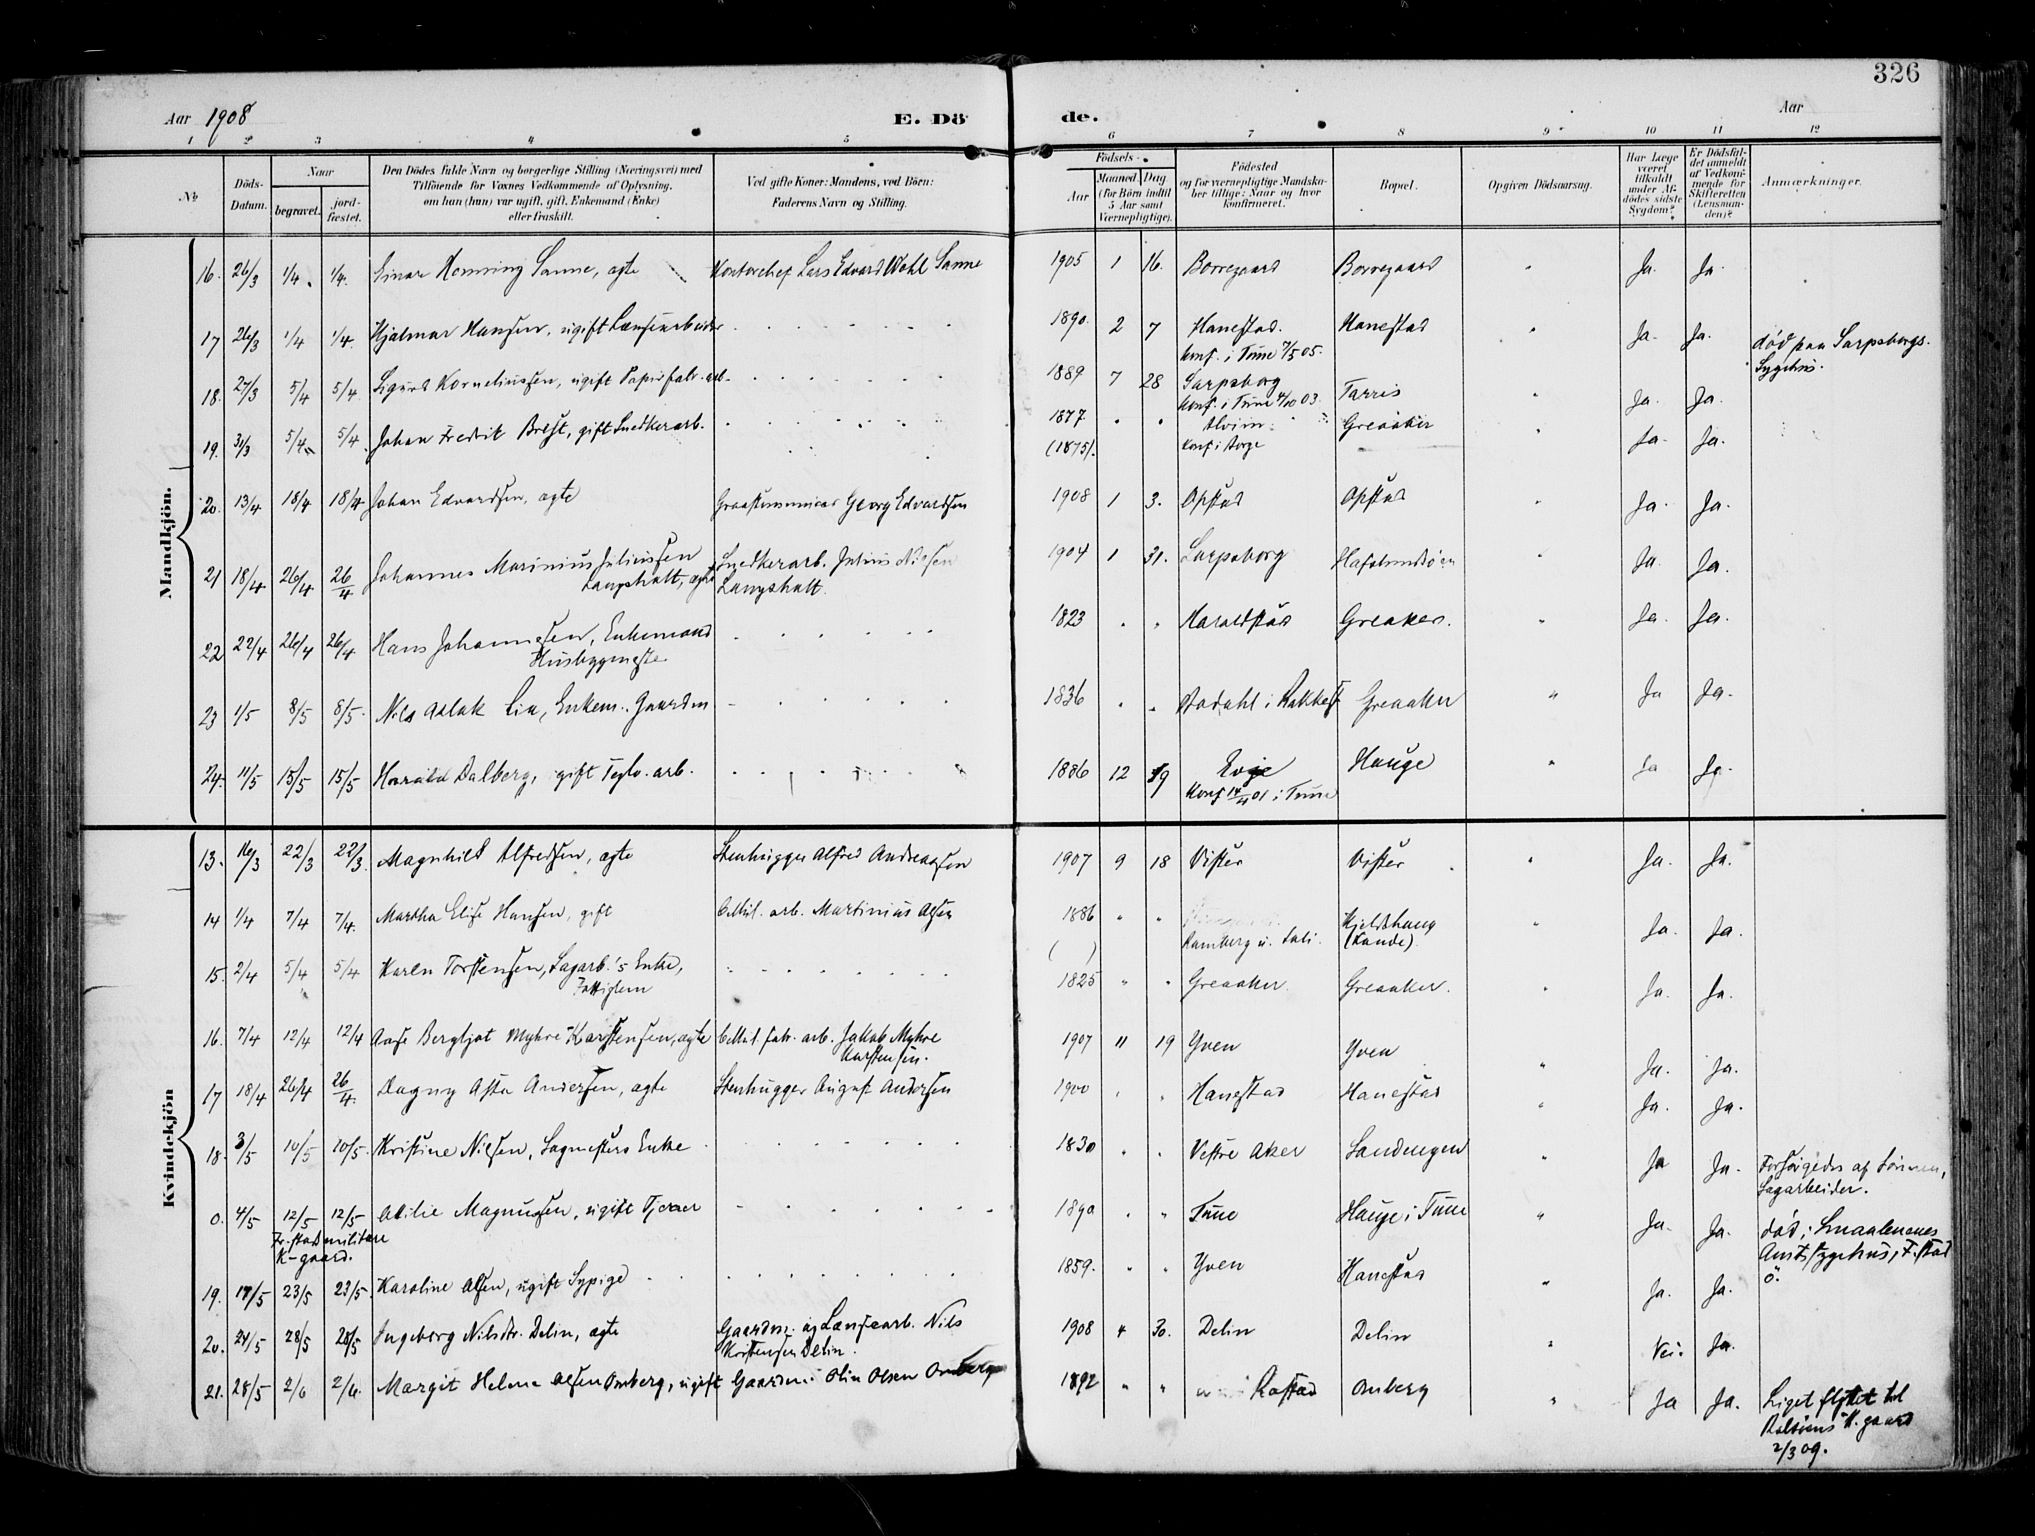 326
Aar 1908
E. Dö
de.
Aar
1 2 3 4 5 6 7 8 9 10 11 12
No
Döds-
Datum.
Naar
begravet.
jord-
fæstet.
Den Dödes fulde Navn og borgerlige Stilling (Næringsvei) med
Tilföiende for Voxnes Vedkommende af Oplysning,
om han (hun) var ugift, gift, Enkemand (Enke)
eller fraskilt.
Ved gifte Koner: Mandens, ved Börn:
Faderens Navn og Stilling.
Födsels-
Aar
Maaned, Dag
(for Börn indtil
5 Aar samt
Værnepligtige).
Födested
og for værnepligtige Mandska-
ber tillige: Naar og hvor
konfirmeret.
Bopæl.
Opgiven Dödsaarsag.
Har Læge
været
tilkaldt
under Af-
dödes sidste
Sygdom?
Er Dödsfal-
det anmeldt
af Vedkom-
mende for
Skifteretten
(Lensman-
den)?
Anmærkninger.
Mandkjön.
16. 26/3 1/4. 1/4. Einar Henning Sanne, ægte Kontorchef Lars Edvard Wohl Sanne 1905 1 16. Borregaard Borregaard " Ja. Ja.
17 26/3 1/4 1/4. Hjalmar Hansen, ugift Lænsearbeider 1890. 2 7 Hanestad. Hanestad " Ja. Ja. død paa Sarpsborgs.
konf. i Tune 7/5 05. Sygehus.
18. 27/3 5/4 5/4 Sigurd Korneliussen, ugift Papirfabr. arb. 1889 7 28 Sarpsborg Tarris " Ja. Ja.
konf. i Tune 4/10 03.
19. 31/3 5/4 5/4. Johan Fredrik Brest, gift Snedkerarb. 1877 " " Alvim Greaaker " Ja. Ja.
(1875). konf. i Borge
20. 13/4 18/4 18/4 Johan Edvardsen, ægte Graastensmurer Georg Edvardsen 1908 1 3. Opstad Opstad " Ja. Ja.
21 18/4 26/4 26/4 Johannes Marinius Juliussen Snedkerarb. Julius Nilsen 1904 1 31. Sarpsborg Hafslundsöen " Ja. Ja.
Langshalt, ægte Langshalt.
22 22/4 26/4 26/4 Hans Johannesen, Enkemand 1823 " " Haraldstad Greaker. " Ja. Ja.
Husbygmester
23 1/5 8/5 8/5. Nils Aslak Lie, Enkem. Gaardm 1836 " " Rakkest Greaaker " Ja Ja.
24. 11/5 15/5 15/5 Harald Dalberg, gift Teglv. arb. 1886 12 19 Evje Hauge " Ja Ja.
konf 14/4 01 i Tune
Kvindekjön
13. 16/3 22/3 22/3. Magnhild Alfredsen, ægte Stenhugger Alfred Andreassen 1907 9 18 Vister Vister " Ja. Ja.
14 1/4 7/4 7/4. Martha Elise Hansen, gift Cellul. arb. Martinius Olsen 1886 " " Kjeldshaug " Ja. Ja.
( ) Ramberg u. (Lande).
15. 2/4 5/4 5/4 Karen Torstensen, Sagarb.'s Enke, 1825 " " Greaaker. Greaaker. " Ja. Ja.
Fattiglem
16. 7/4 12/4 12/4 Aase Bergljot Myhre Karstensen, ægte Cellul. fabr. arb. Jakob Myhre 1907 11 19 Yven Yven " Ja. Ja.
Karstensen.
17 18/4 26/4 26/4. Dagny Asta Andersen, ægte Stenhugger August Andersen 1900 " " Hanestad Hanestad " Ja. Ja.
18. 3/5 10/5 10/5. Kristine Nilsen, Sagmesters Enke 1830 " " Vestre Aker Sandengen " Ja Ja. Forsörgedes af Sönnen,
Sagarbeider.
0. 4/5 12/5 12/5 Otilie Magnussen, ugift Tjener 1890 " " Tune Hauge i Tune " Ja. Ja. död i Smaalenenes
Fr.stad militære Amts sygehus, F.stad
K-gaard. ö.
19. 17/5 23/5 23/5. Karoline Olsen, ugift Sypige 1859. " " Yven Hanestad " Ja. Ja.
20. 24/5 28/5 28/5 Ingeborg Nilsdtr. Delin, ægte Gaardm. og Lænsearb. Nils 1908 4 30. Delin Delin " Nei. Ja.
Kristensen Delin.
21. 28/5 2/6 2/6. Margit Helene Olsen Omberg, ugift Gaardm. Olin Olsen Omberg 1892 " " Rostad Omberg " Ja Ja. Liget flyttet til
Rolsöens K. gaard
2/3 09.